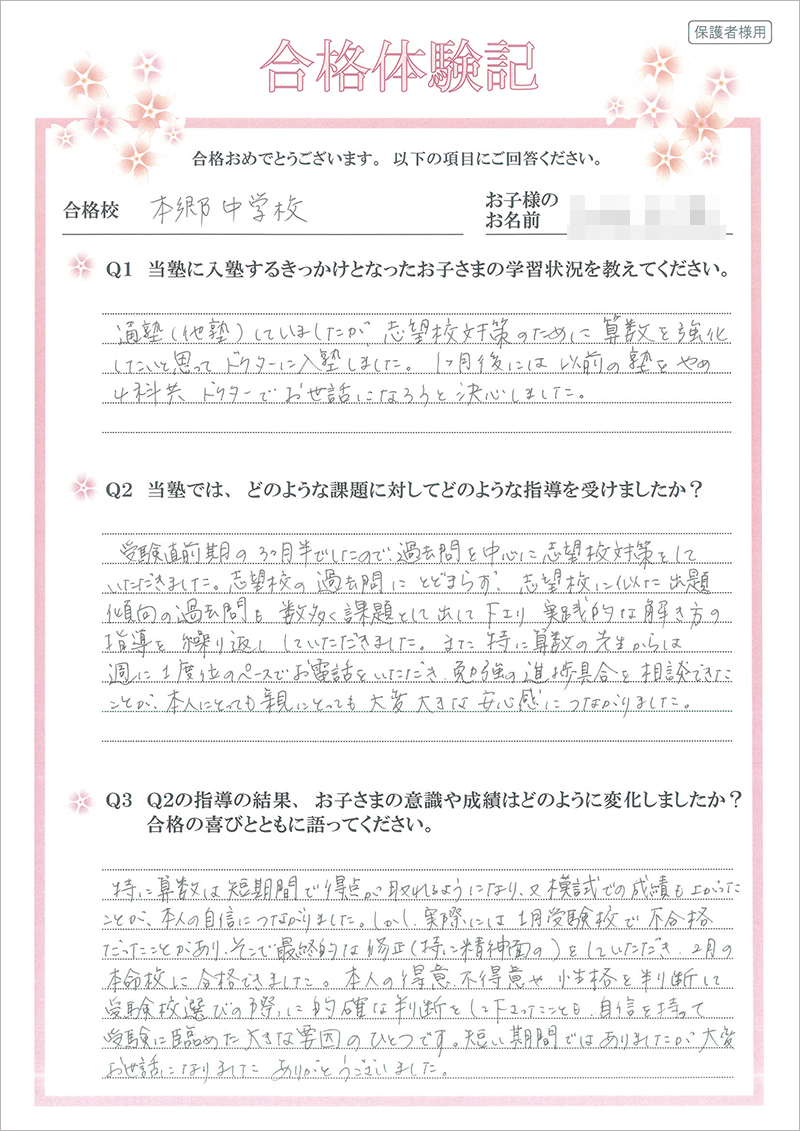 保護者様用
合格体験記
合格おめでとうございます。以下の項目にご回答ください。
合格校 本郷中学校
お子様の
お名前
Q1 当塾に入塾するきっかけとなったお子さまの学習状況を教えてください。
通塾(他塾)していましたが 志望校対策のために 算数を強化
したいと思って ドクターに入塾しました。 1ヶ月後には 以前の塾をやめ
4科共 ドクターでお世話になろうと決心しました。
Q2 当塾では、どのような課題に対してどのような指導を受けましたか?
受験直前期の3ヶ月半でしたので、過去問を中心に志望校対策をして
いただきました。志望校の過去問にとどまらず、志望校に似た出題
傾向の過去問も 数多く課題として出して下さり 実践的な解き方の
指導を繰り返し していただきました。また 特に算数の先生からは
週に1度位のペースでお電話をいただき、勉強の進捗具合を相談できた
ことが、本人にとっても親にとっても 大変大きな安心感につながりました。
Q3 Q2の指導の結果、お子さまの意識や成績はどのように変化しましたか?
合格の喜びとともに語ってください。
特に算数は短期間で得点が取れるようになり、又模試での成績も上がった
ことが、本人の自信につながりました。しかし、実際には1月受験校で不合格
だったことがあり、そこで最終的な修正(特に精神面の)をしていただき、2月の
本命校に合格できました。本人の得意、不得意や 性格を判断して
受験校選びの際に的確な判断をして下さったことも、自信を持って
受験に臨めた大きな要因のひとつです。短い期間ではありましたが 大変
お世話になりました ありがとうございました。